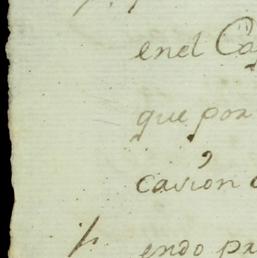 enel Ca
que por
casion
endo pr